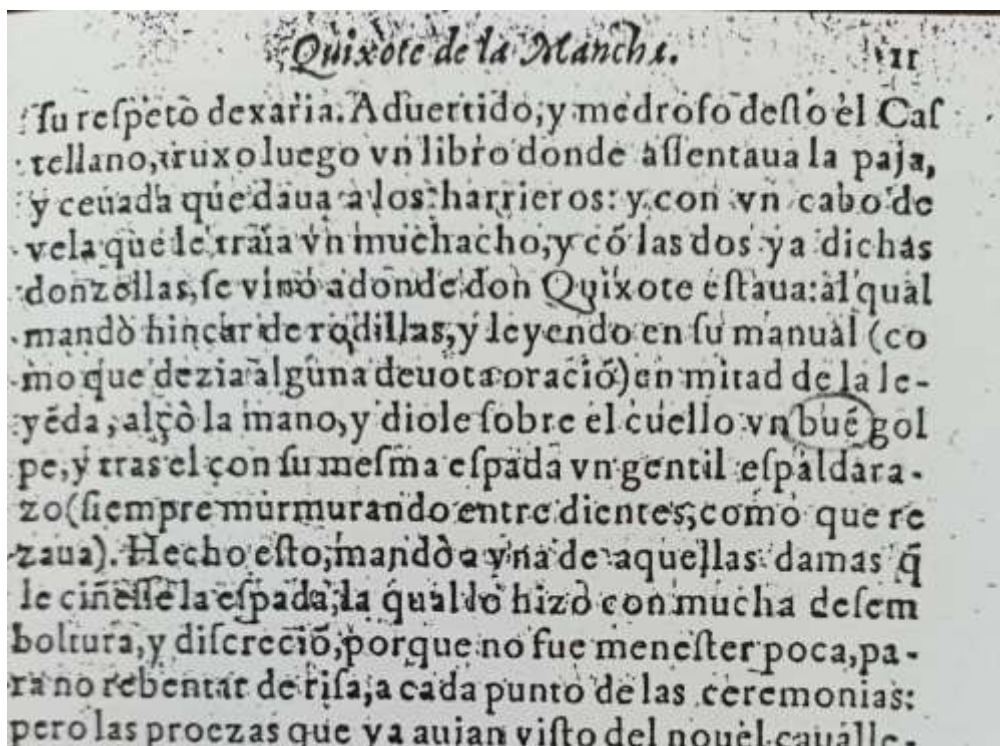 Quixote de la Mancha. 11
ſu reſpeto dexaria. Aduertido, y medroſo deſto el Caſ
tellano, truxo luego vn libro donde aſſentaua la paja,
y ceuada que daua a los harrieros: y con vn cabo de
vela que le traia vn muchacho, y cõ las dos ya dichas
donzellas, ſe vino adonde don Quixote eſtaua: al qual
mandò hincar de rodillas, y leyendo en ſu manual (co
mo que dezia alguna deuota oraciõ) en mitad de la le-
yẽda, alçò la mano, y diole ſobre el cuello vn bué gol
pe, y tras el con ſu meſma eſpada vn gentil eſpaldara-
zo (ſiempre murmurando entre dientes, como que re
zaua). Hecho eſto, mandò a vna de aquellas damas q̃
le ciñeſſe la eſpada, la qual lo hizo con mucha deſem
boltura, y diſcreciõ, porque no fue meneſter poca, pa-
ra no rebentar de riſa, a cada punto de las ceremonias:
pero las proezas que ya auian viſto del nouel cauàlle-